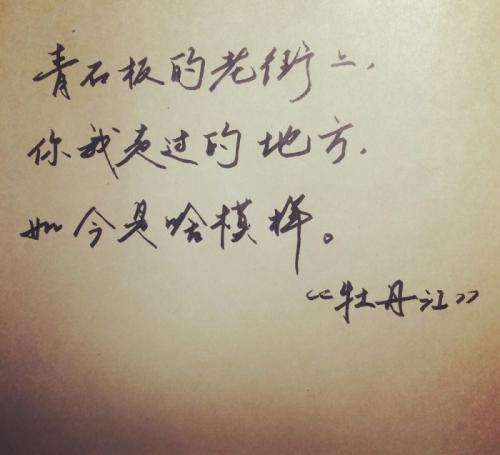 青石板的老街上，
你我走过的地方，
如今是啥模样。
《牡丹江》